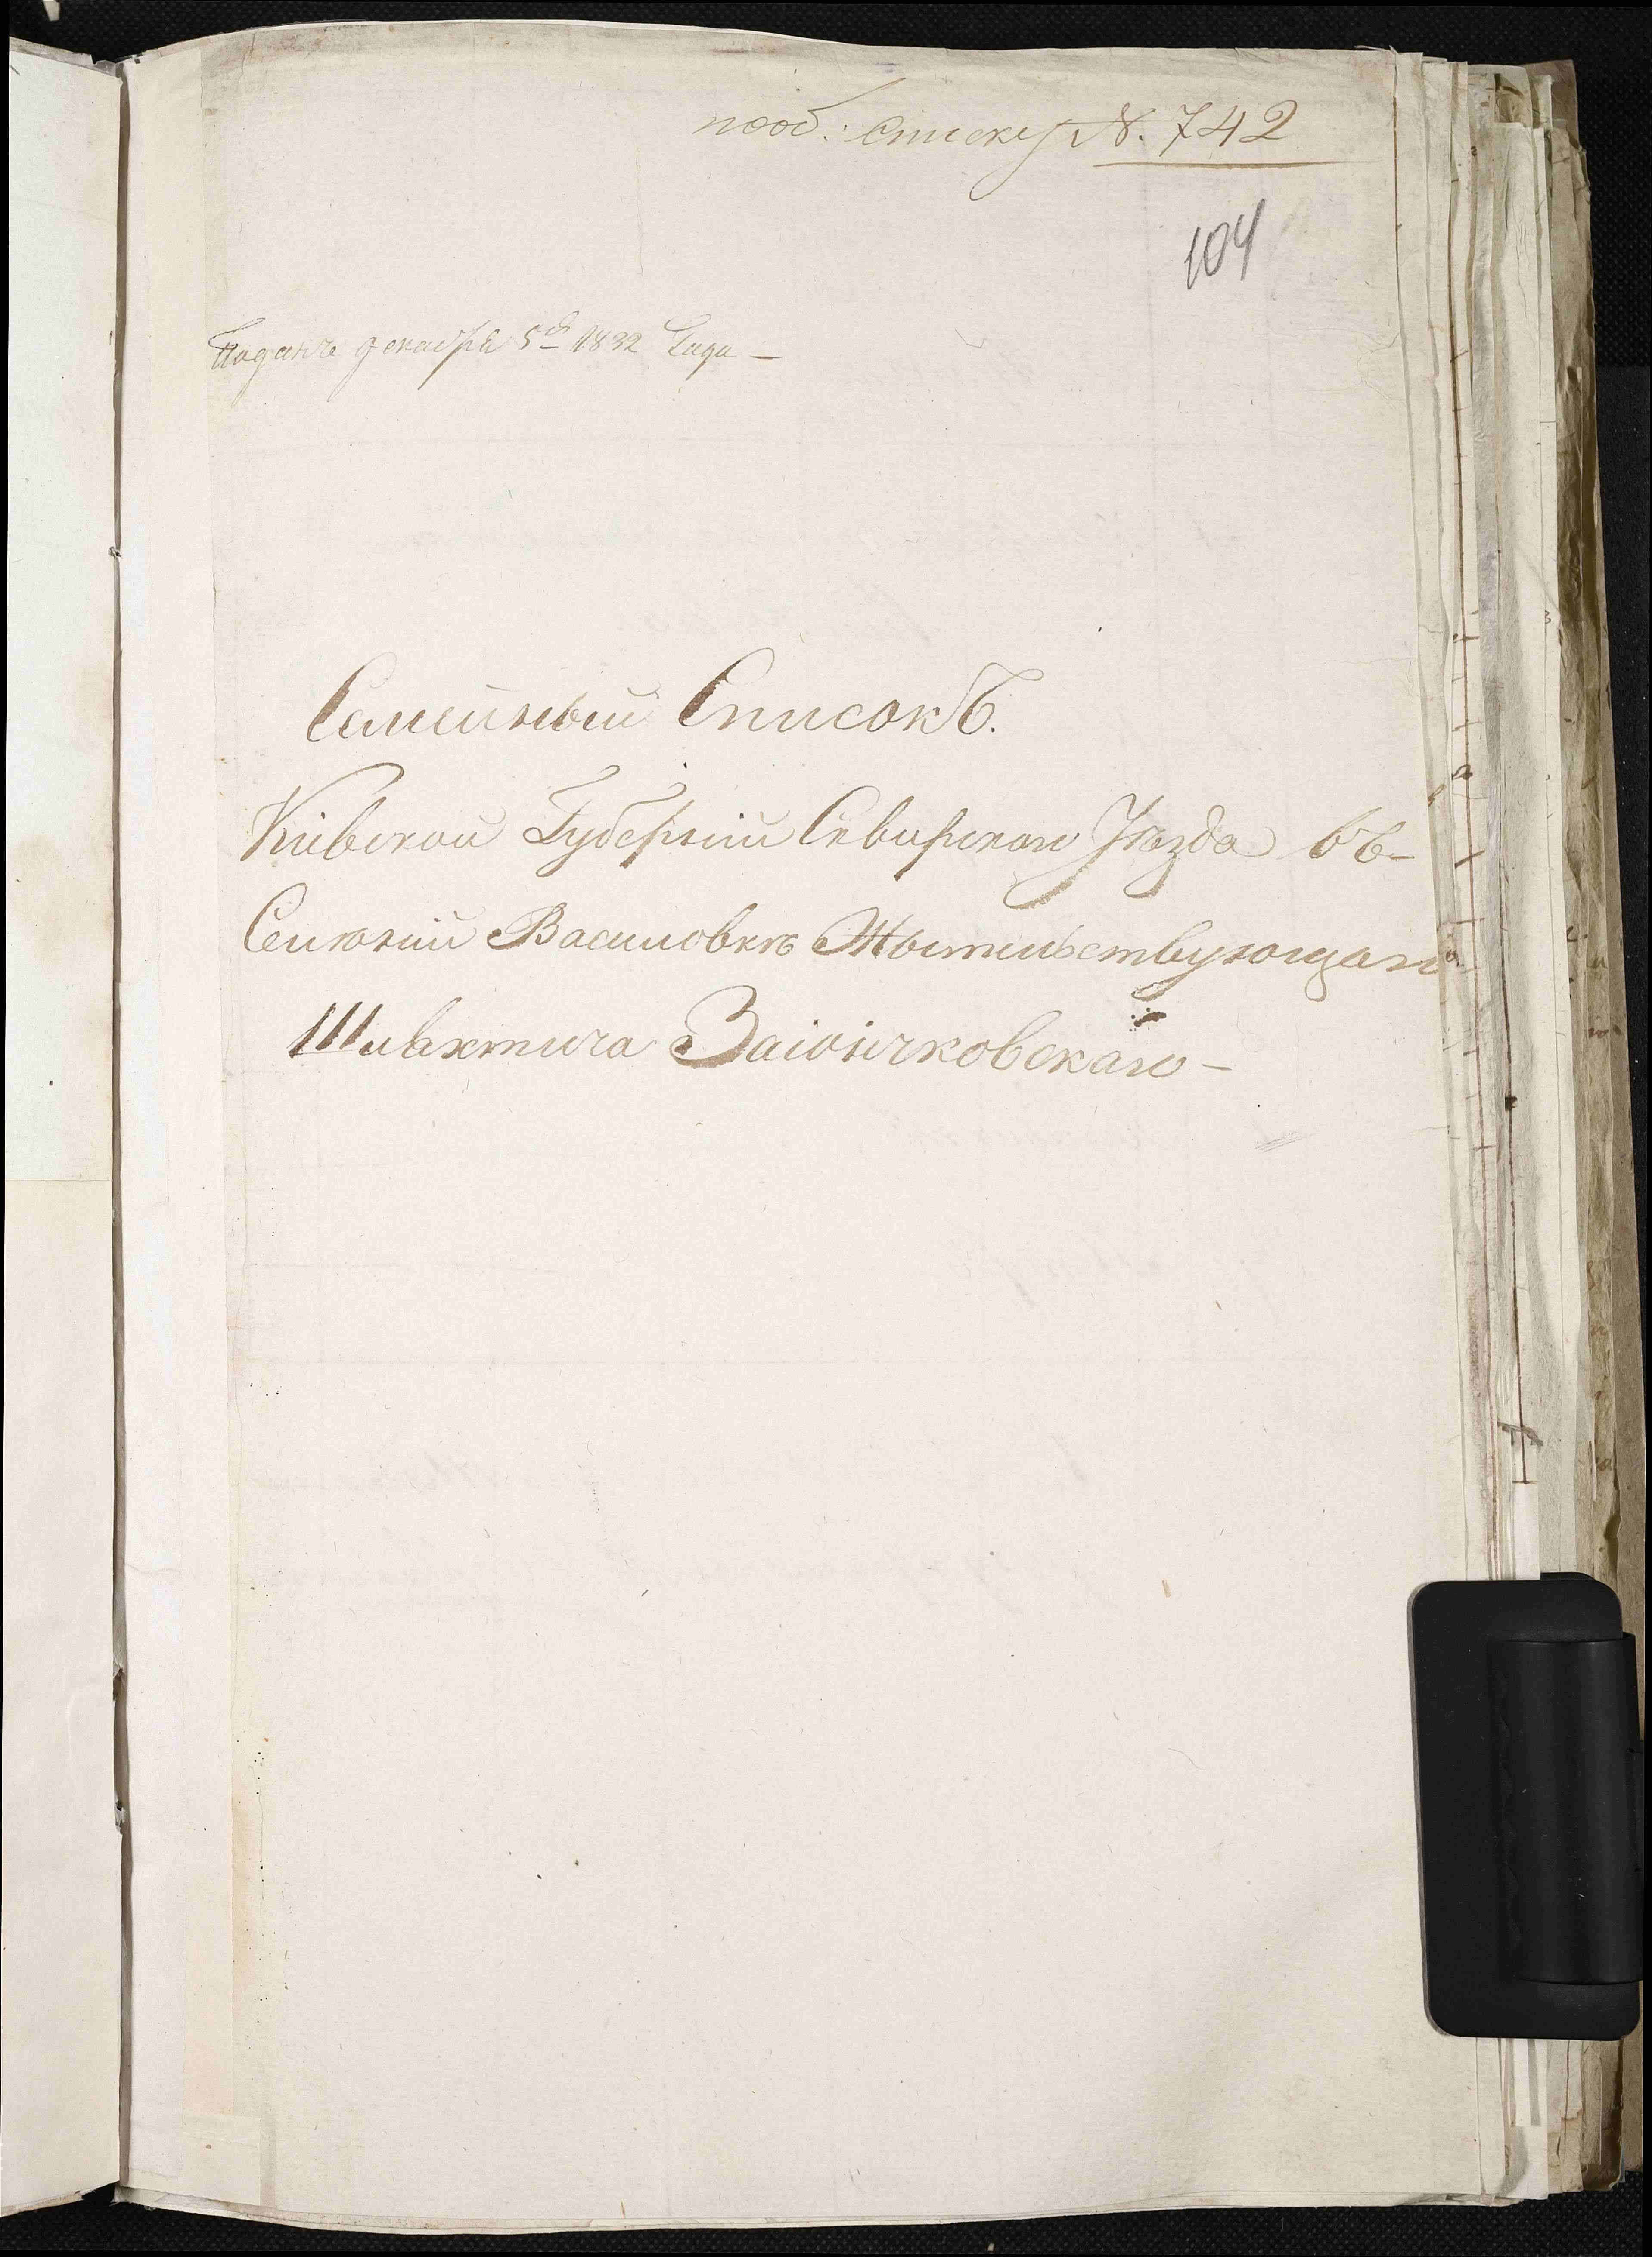 пооб: списку N. 742
104
Поданъ декабря 5го 1832 Года —
Семейный Списокъ.
Кіевской Губерніи Сквирскаго Уѣзда въ-
Селеній Василовкѣ Жытельствующаго
Шляхтича Заіончковскаго —